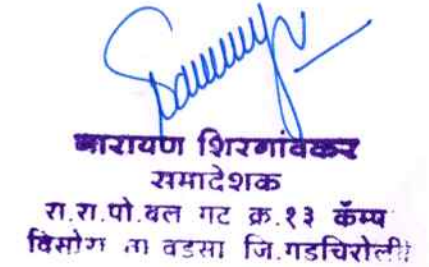 नारायण शिरगांवकर
समादेशक
रा.रा.पो.बल गट क्र.१३ कॅम्प
विसोरा ता वडसा जि.गडचिरोली